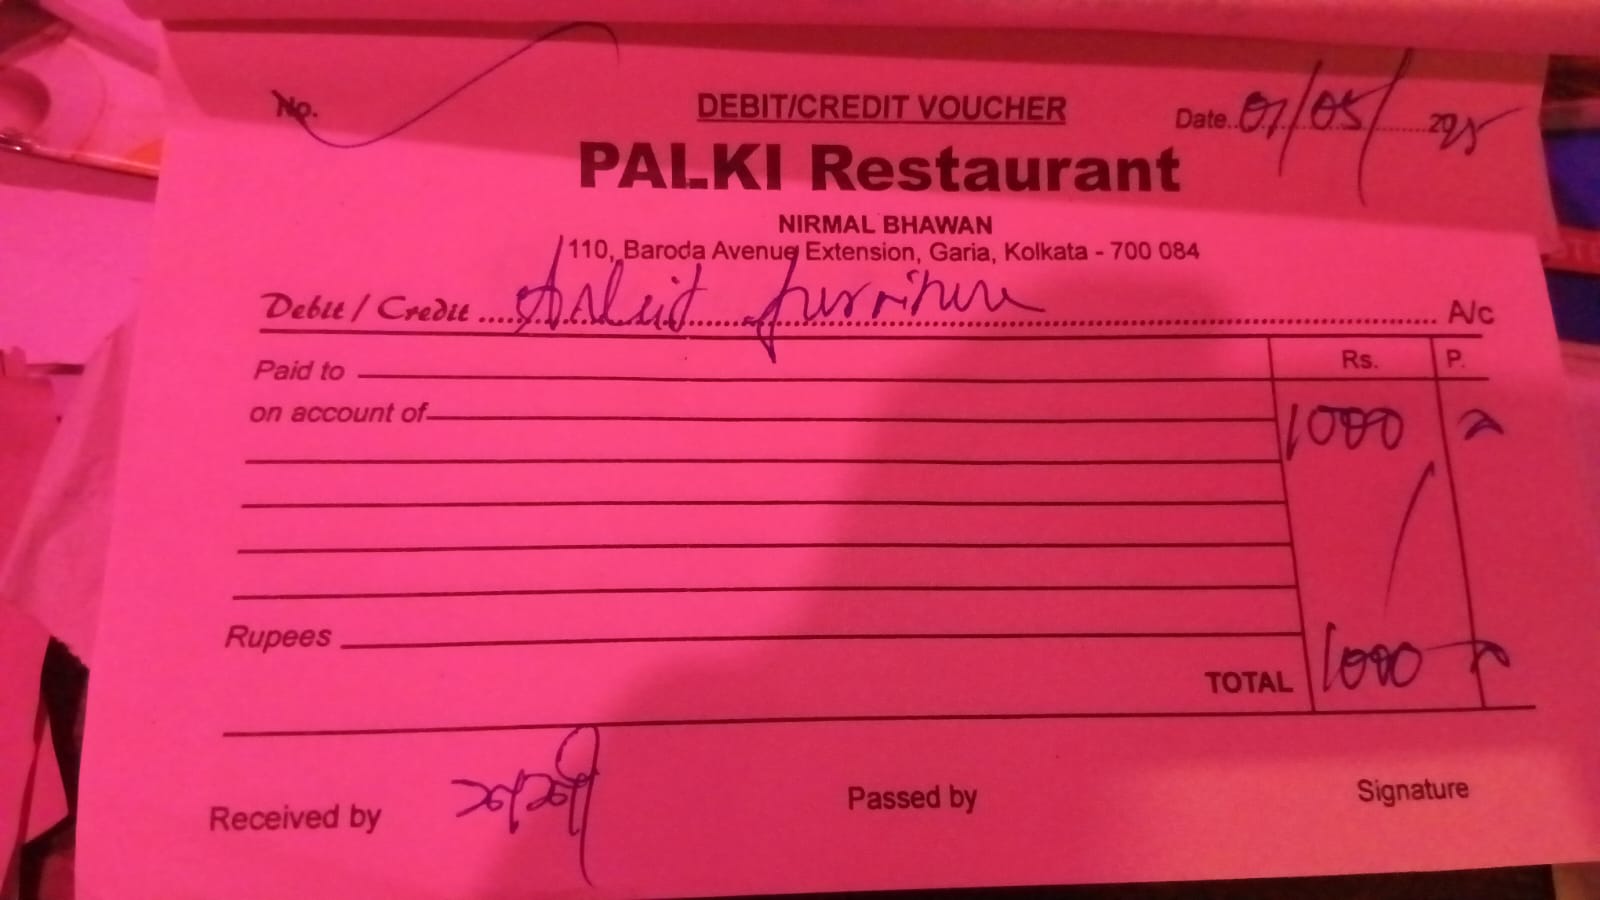 No.
DEBIT/CREDIT VOUCHER
Date 01/05/2025
PALKI Restaurant
NIRMAL BHAWAN
110, Baroda Avenue Extension, Garia, Kolkata - 700 084
Debit / Credit Ankit furniture A/c
Rs. P.
Paid to
on account of 1000
Rupees
TOTAL 1000
Received by Passed by Signature